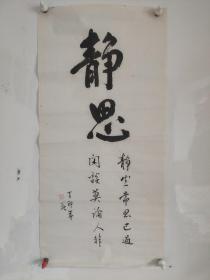 静思
静坐常思己过
闲谈莫论人非
丁卯年